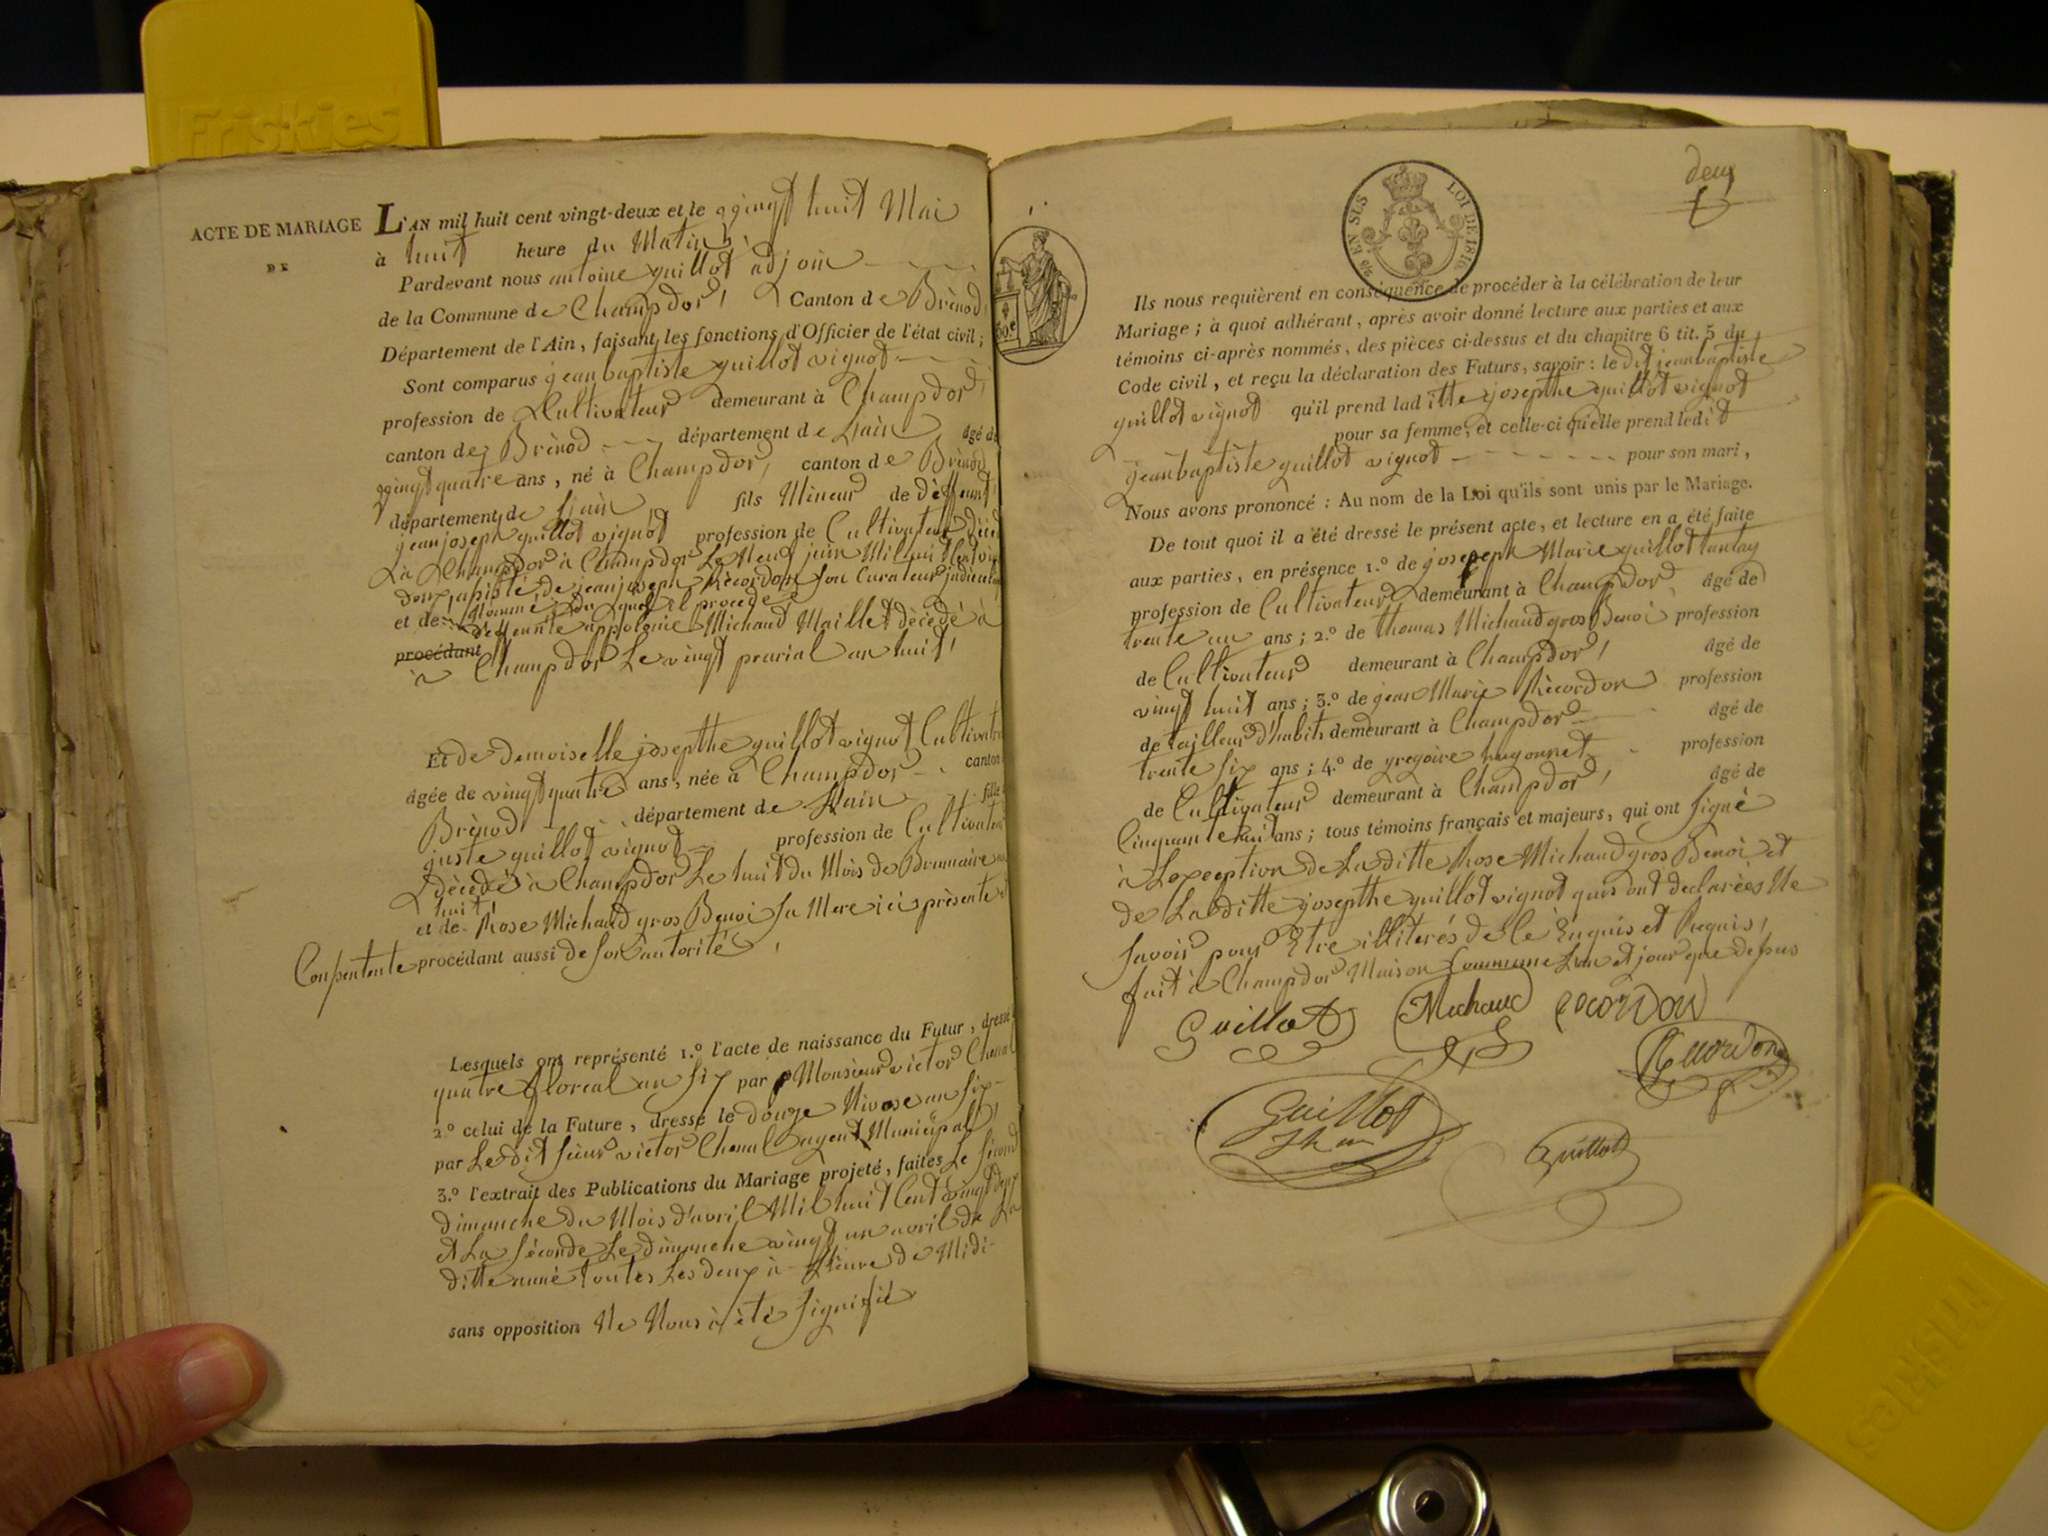 Friskies
ACTE DE MARIAGE
DE
L'AN mil huit cent vingt-deux et le vingt huit Mai
à huit heure du Matin
Pardevant nous antoine guillot adjoin
de la Commune de Champdor Canton de Brènod
Département de l'Ain, faisant les fonctions d'Officier de l'état civil;
Sont comparus jeanbaptiste guillot vignot
profession de Cultivateur demeurant à Champdor
canton de Brènod département de Lain âgé de
vingt quatre ans, né à Champdor canton de Brènod
département de Lain fils Mineur de deffunt
jeanjoseph guillot vignot profession de Cultivateur décéd
à Champdor Le Neuf juin Mil huit Cent vingt
deux, assisté de jeanjoseph Récordon son Curateur
et de Nommé du quel il procede
deffeunte appolonie Michaud Maillet décédé à
procédant
à Champdor Le vingt prairial an huit
Et de demoiselle josepthe guillot vignot Cultivatr
âgée de vingt quatre ans, née à Champdor canton
Brènod département de Lain fille
juste guillot vignot profession de Cultivateur
décédé à Champdor Le huit du Mois de Brumaire an
huit
et de Rose Michaud gros Benoi sa Mere ici prèsente et
Consentente procédant aussi de son autorité
Lesquels ont représenté 1.º l'acte de naissance du Futur, dressé
quatre floreal an six par Monsieur victor Chenal
2.º celui de la Future, dressé le douze Nivose an six
par Le dit sieur victor Chenal agent Municipal
3.º l'extrait des Publications du Mariage projeté, faites Le second
dimanche du Mois d'avril Mil huit Cent vingt deux
et La séconde Le dimanche vingt un avril de La
ditte année toutes Les deux à Lheure de Midi
sans opposition Ne Nous à été signifié
deux
EN SUS LOI DE 1816
Ils nous requièrent en conséquence de procéder à la célébration de leur
Mariage; à quoi adhérant, après avoir donné lecture aux parties et aux
témoins ci-après nommés, des pièces ci-dessus et du chapitre 6 tit. 5 du
Code civil, et reçu la déclaration des Futurs, savoir: le dit jeanbaptiste
guillot vignot qu'il prend lad itte josepthe guillot vignot
pour sa femme, et celle-ci qu'elle prend ledit
jeanbaptiste guillot vignot pour son mari,
Nous avons prononcé: Au nom de la Loi qu'ils sont unis par le Mariage.
De tout quoi il a été dressé le présent acte, et lecture en a été faite
aux parties, en présence 1.º de joseph Marie guillot tantay
profession de Cultivateur demeurant à Champdor âgé de
trente un ans; 2.º de thomas Michaud gros Benoi profession
de Cultivateur demeurant à Champdor âgé de
vingt huit ans; 3.º de jean Marie Récordon profession
de tailleur d'habits demeurant à Champdor âgé de
trente six ans; 4.º de gregoire hugonnet profession
de Cultivateur demeurant à Champdor âgé de
Cinquante huit ans; tous témoins français et majeurs, qui ont signé
à Lexception de La ditte Rose Michaud gros Benoi et
de Laditte josepthe guillot vignot qui ont declarées Ne
savoir pour Etre illiterés de Ce Enquis et Requis
fait à Champdor Maison Commune Lan et jour que dessus
Guillot Michaud Récordon
Récordon
Guillot
Guillot
Friskies